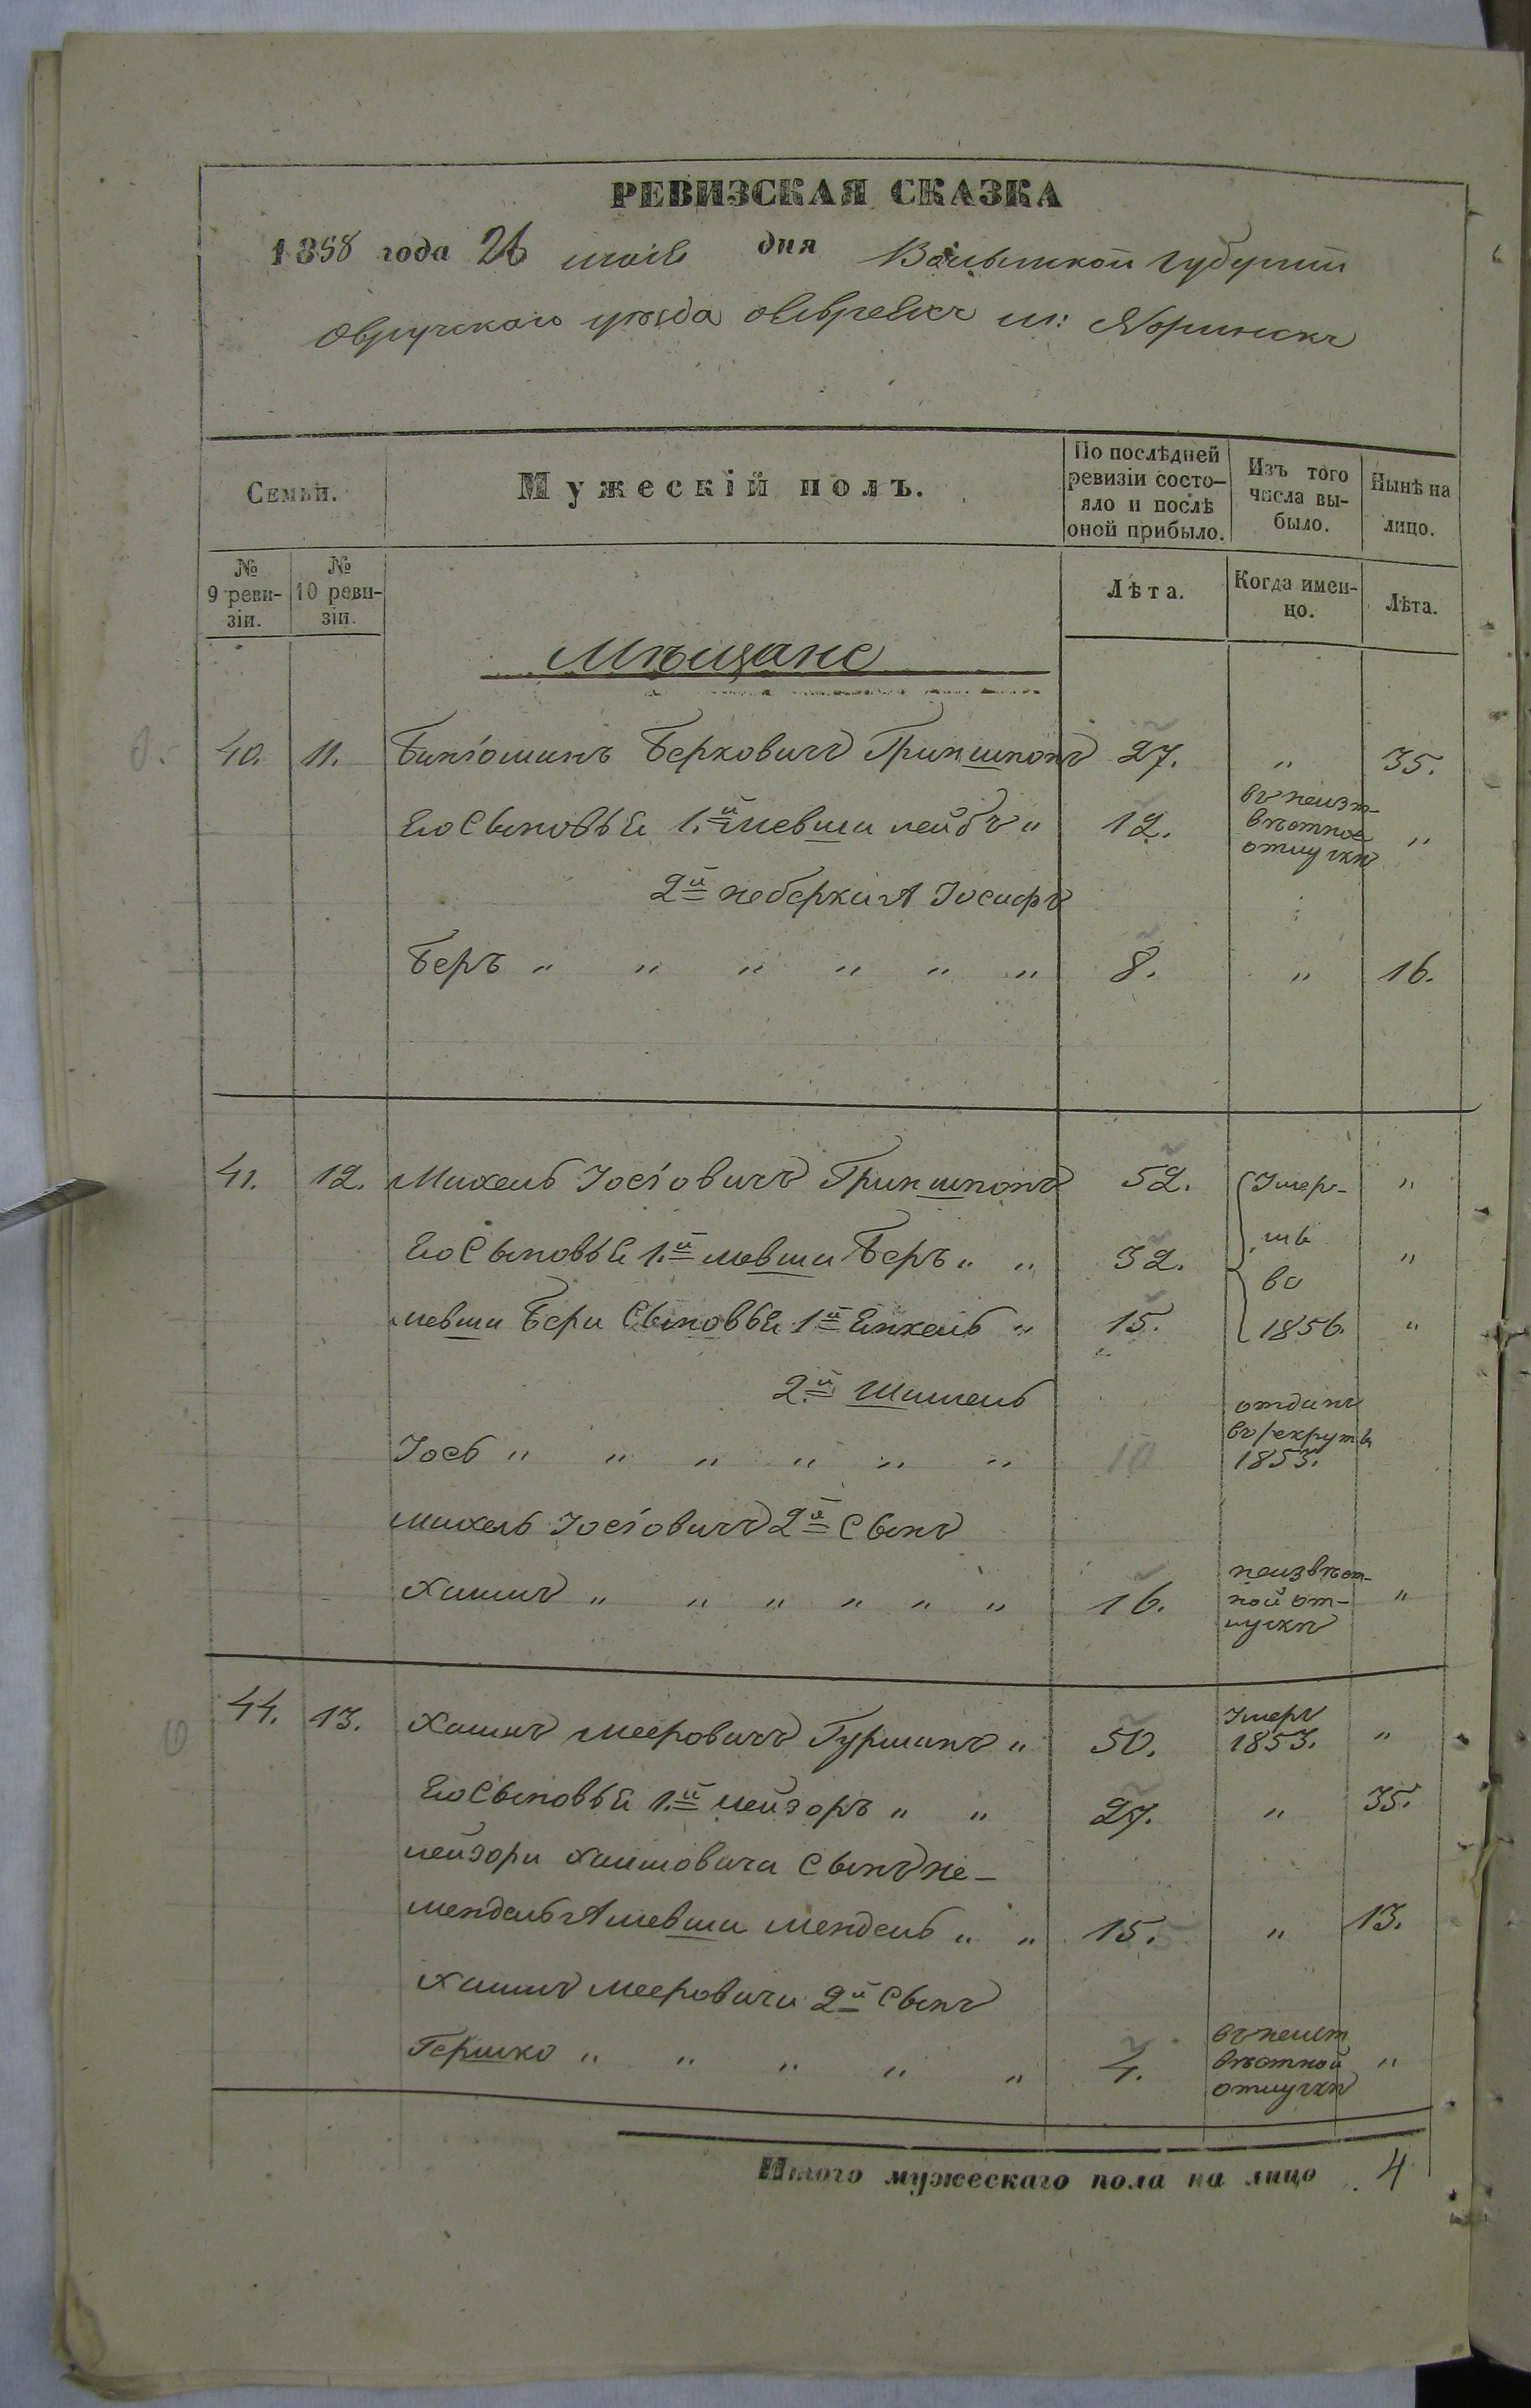 РЕВИЗСКАЯ СКАЗКА
1858 года 26 маія дня Волынской губерніи
Овручскаго уѣзда о евреяхъ м: Норинскъ
Семьи.
Мужескій полъ.
По послѣдней ревизіи состо-
яло и послѣ
оной прибыло.
Изъ того
числа вы-
было.
Нынѣ на
лицо.
№
9 реви-
зіи.
№
10 реви-
зіи.
Лѣта.
Когда имен-
но.
Лѣта.
Мѣщане
40. 11. Биніоминъ Берковичъ Гриншпонъ 27. " 35.
Его Сыновья 1.й Мевша лейбъ " 12. въ неизъ-
вѣстной
отлучкѣ "
2й не берка а Іосифъ
Беръ " " " " " " 8. " 16.
41. 12. Михель Іосіовичъ Гриншпонъ 52. Умер- "
Его Сыновья 1.й мовша Беръ " " 32. ли "
мевши Бера Сыновья 1й Енкель " 15. во 1856. "
2.й Шмиель
Іось " " " " " " 10 отданъ
въ рекруты
1853.
михель Іосіовичъ 2й Сынъ
Хаимъ " " " " " " 16. неизвѣст-
ной от-
лучкѣ "
44. 13. Хаимъ Мееровичъ Гурманъ " 50. Умеръ
1853. "
Его Сыновья 1.й лейзоръ " " 27. " 35.
лейзора Хаимовича Сынъ не-
мендель а мевша мендель " " 15. " 13.
Хаимъ Мееровича 2й Сынъ
Гершко " " " " " 4. въ неизъ
вѣстной
отлучкѣ "
Итого мужескаго пола на лицо . 4